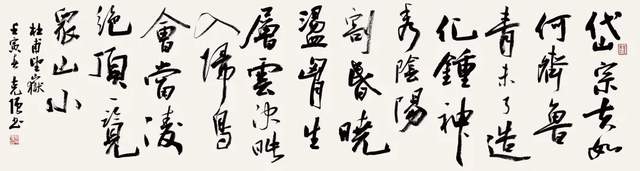 岱宗夫如
何齊魯
青未了造
化鍾神
秀陰陽
割昏曉
盪胷生
層雲決眥
入歸鳥
會當凌
絕頂一覽
眾山小
杜甫望嶽
壬寅春克書